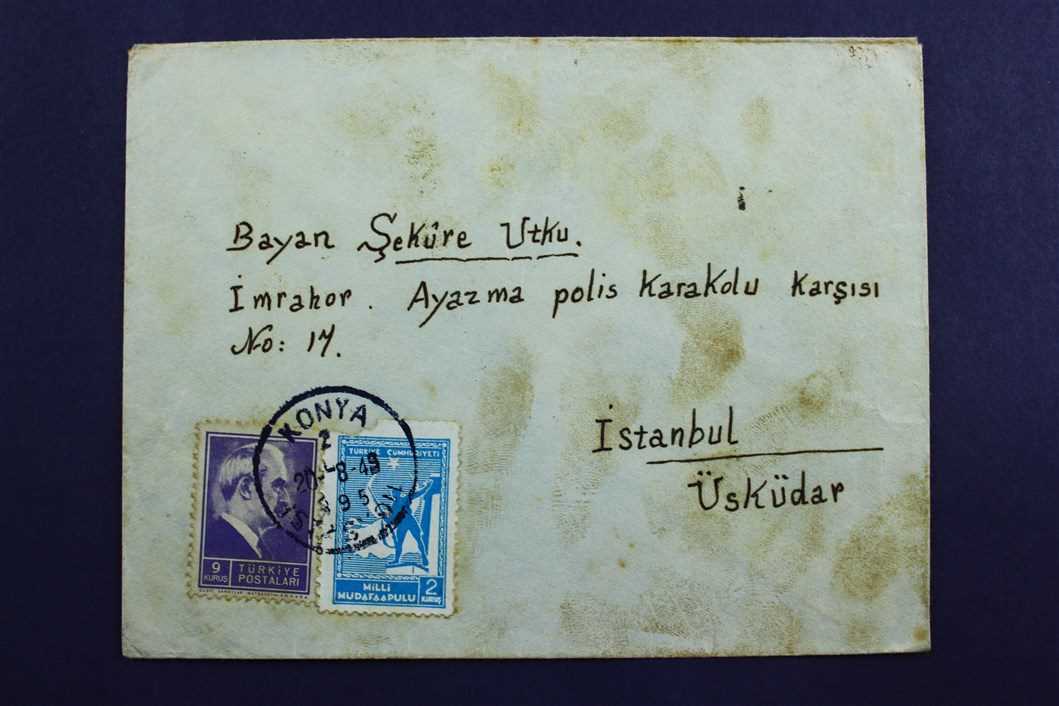 Bayan Şekûre Utku.
İmrahor. Ayazma polis Karakolu Karşısı
No: 17.
İstanbul
Üsküdar
KONYA
2
20-8-49
9
TÜRKİYE CÜMHURİYETİ
9
KURUŞ
TÜRKİYE
POSTALARI
MİLLİ
MÜDAFAA PULU
2
KURUŞ